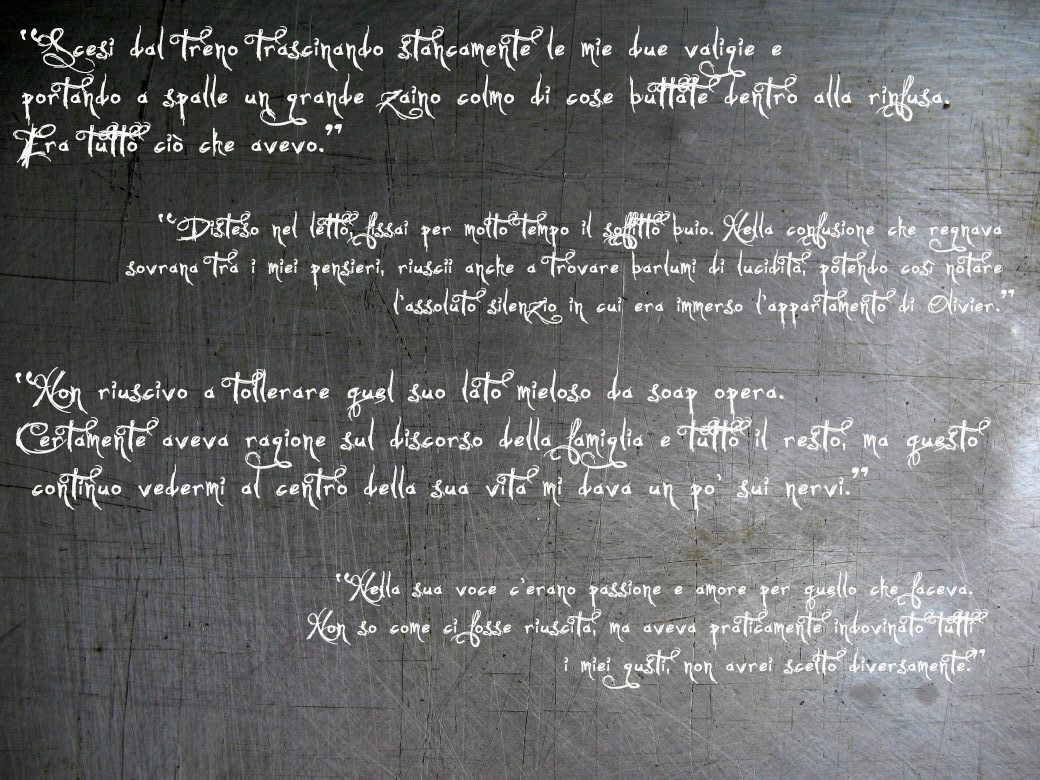 “Scesi dal treno trascinando stancamente le mie due valigie e
portando a spalle un grande zaino colmo di cose buttate dentro alla rinfusa.
Era tutto ciò che avevo.”
“Disteso nel letto, fissai per molto tempo il soffitto buio. Nella confusione che regnava
sovrana tra i miei pensieri, riuscii anche a trovare barlumi di lucidità, potendo così notare
l'assoluto silenzio in cui era immerso l'appartamento di Olivier.”
“Non riuscivo a tollerare quel suo lato mieloso da soap opera.
Certamente aveva ragione sul discorso della famiglia e tutto il resto, ma questo
continuo vedermi al centro della sua vita mi dava un po' sui nervi.”
“Nella sua voce c'erano passione e amore per quello che faceva.
Non so come ci fosse riuscita, ma aveva praticamente indovinato tutti
i miei gusti, non avrei scelto diversamente.”